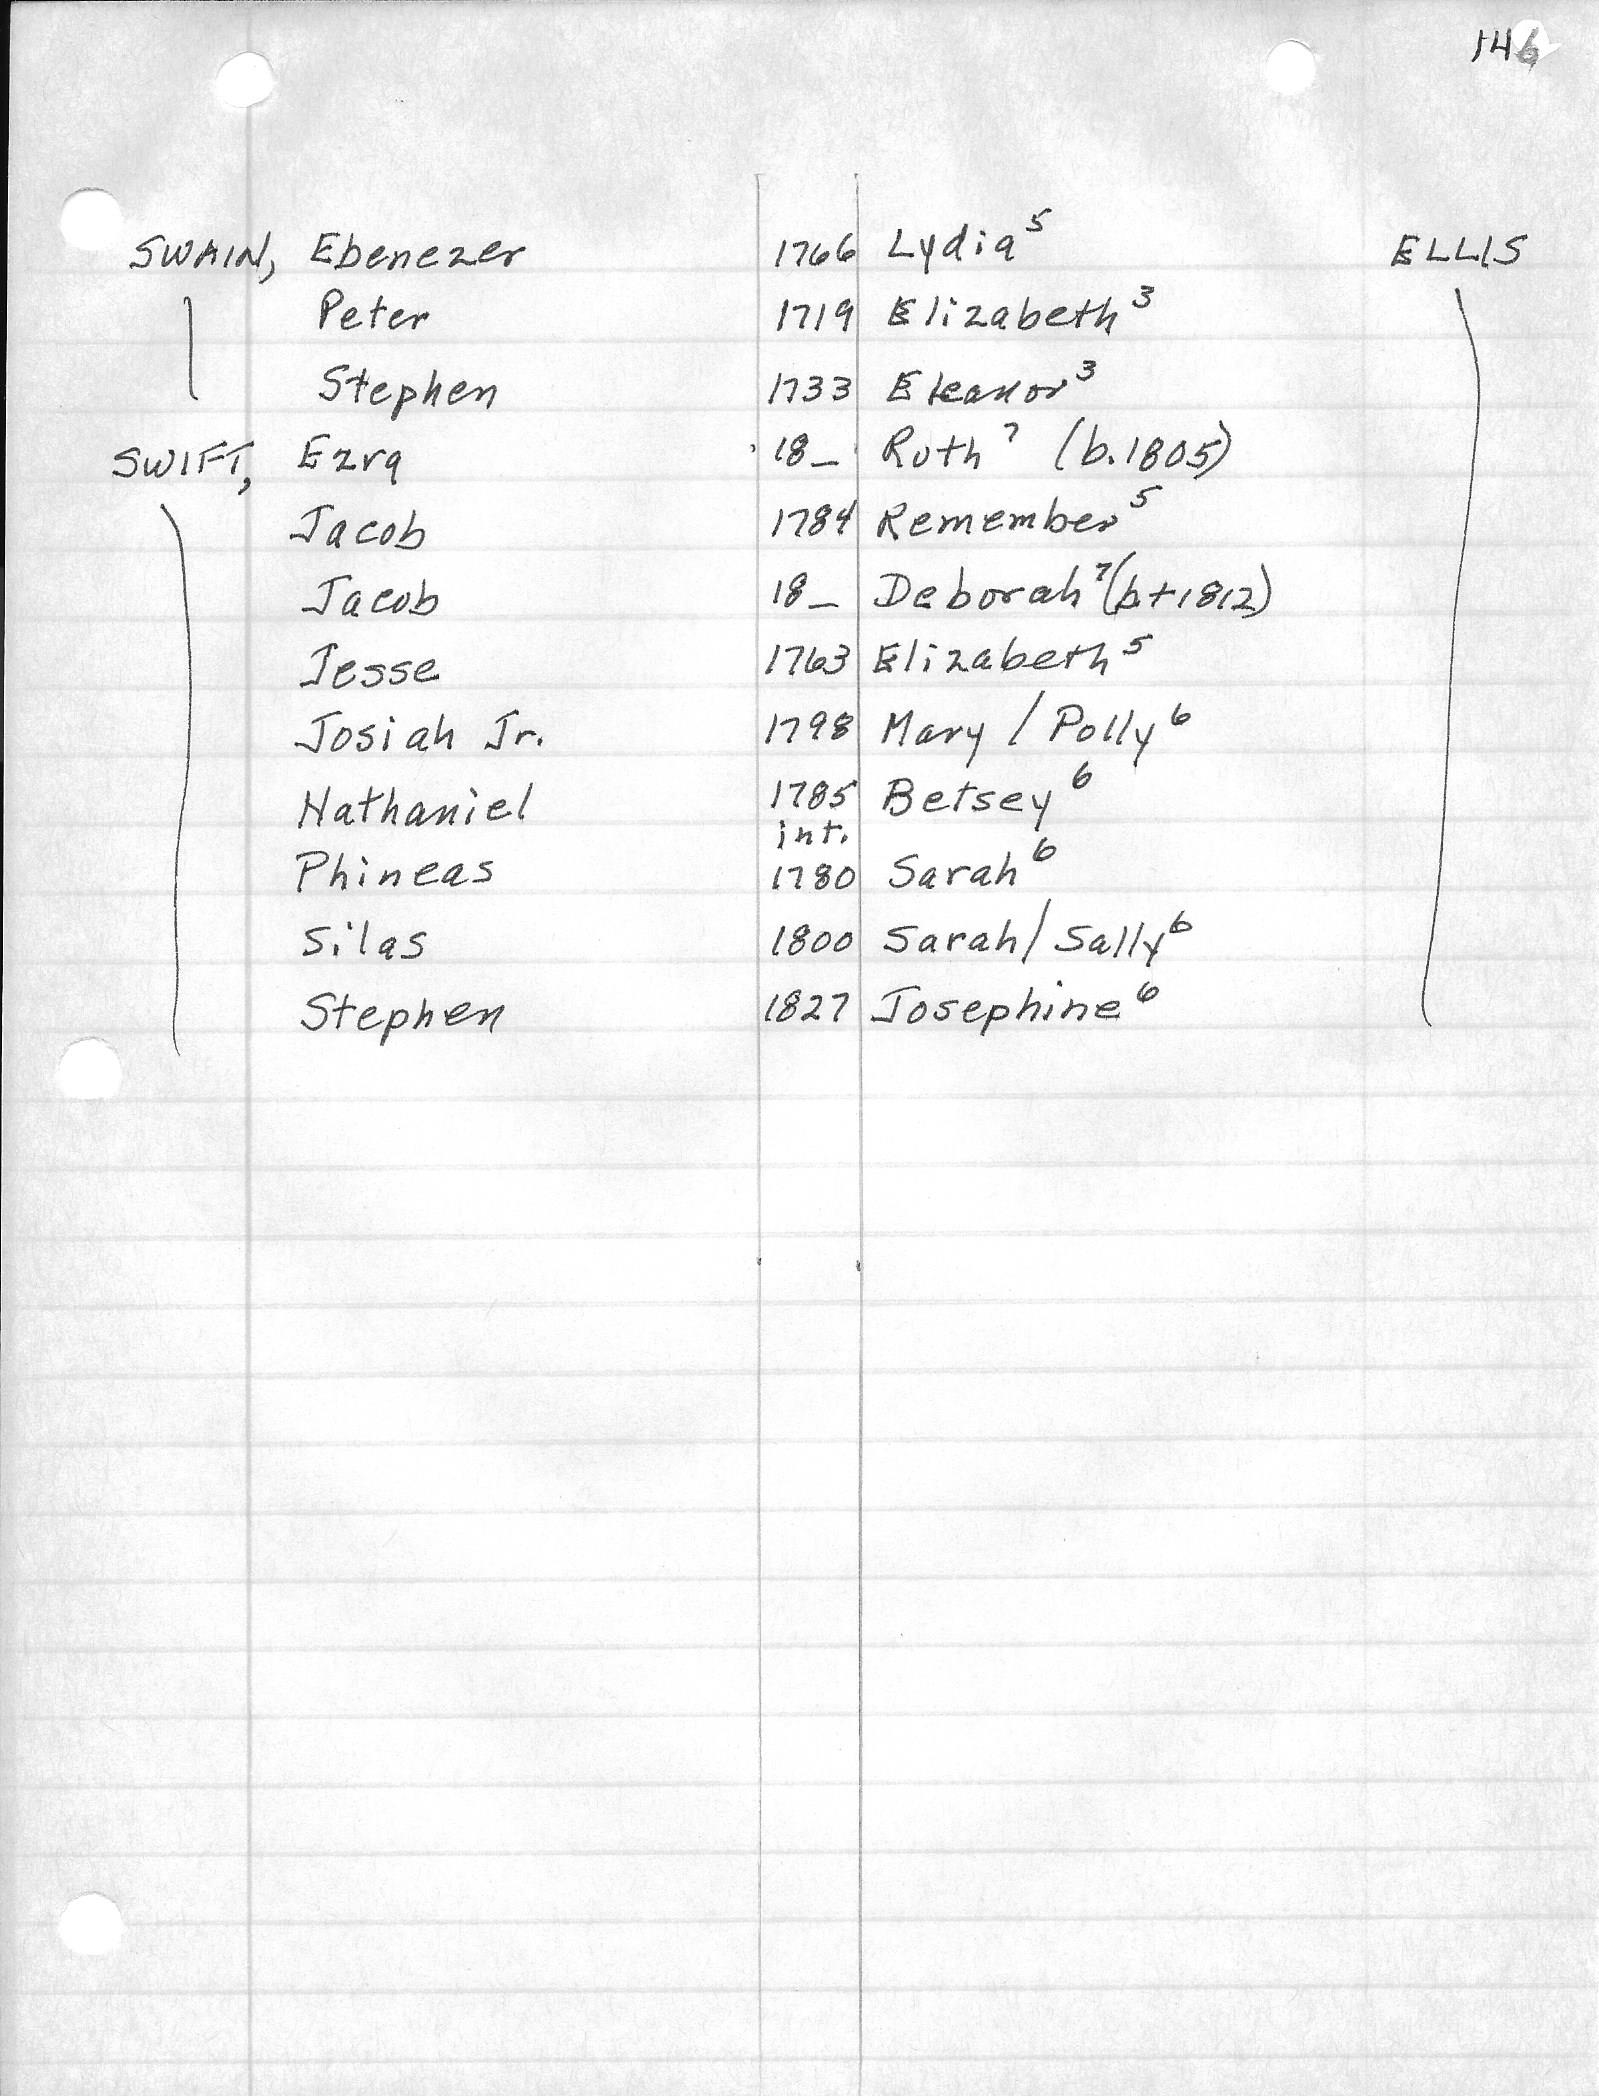 146
SWAIN, Ebenezer 1766 Lydia⁵ ELLIS
Peter 1719 Elizabeth³
Stephen 1733 Eleanor³
SWIFT, Ezra 18_ Ruth⁷ (b.1805)
Jacob 1784 Remember⁵
Jacob 18_ Deborah⁷ (bt 1812)
Jesse 1763 Elizabeth⁵
Josiah Jr. 1798 Mary / Polly⁶
Nathaniel 1785 Betsey⁶
int.
Phineas 1780 Sarah⁶
Silas 1800 Sarah / Sally⁶
Stephen 1827 Josephine⁶